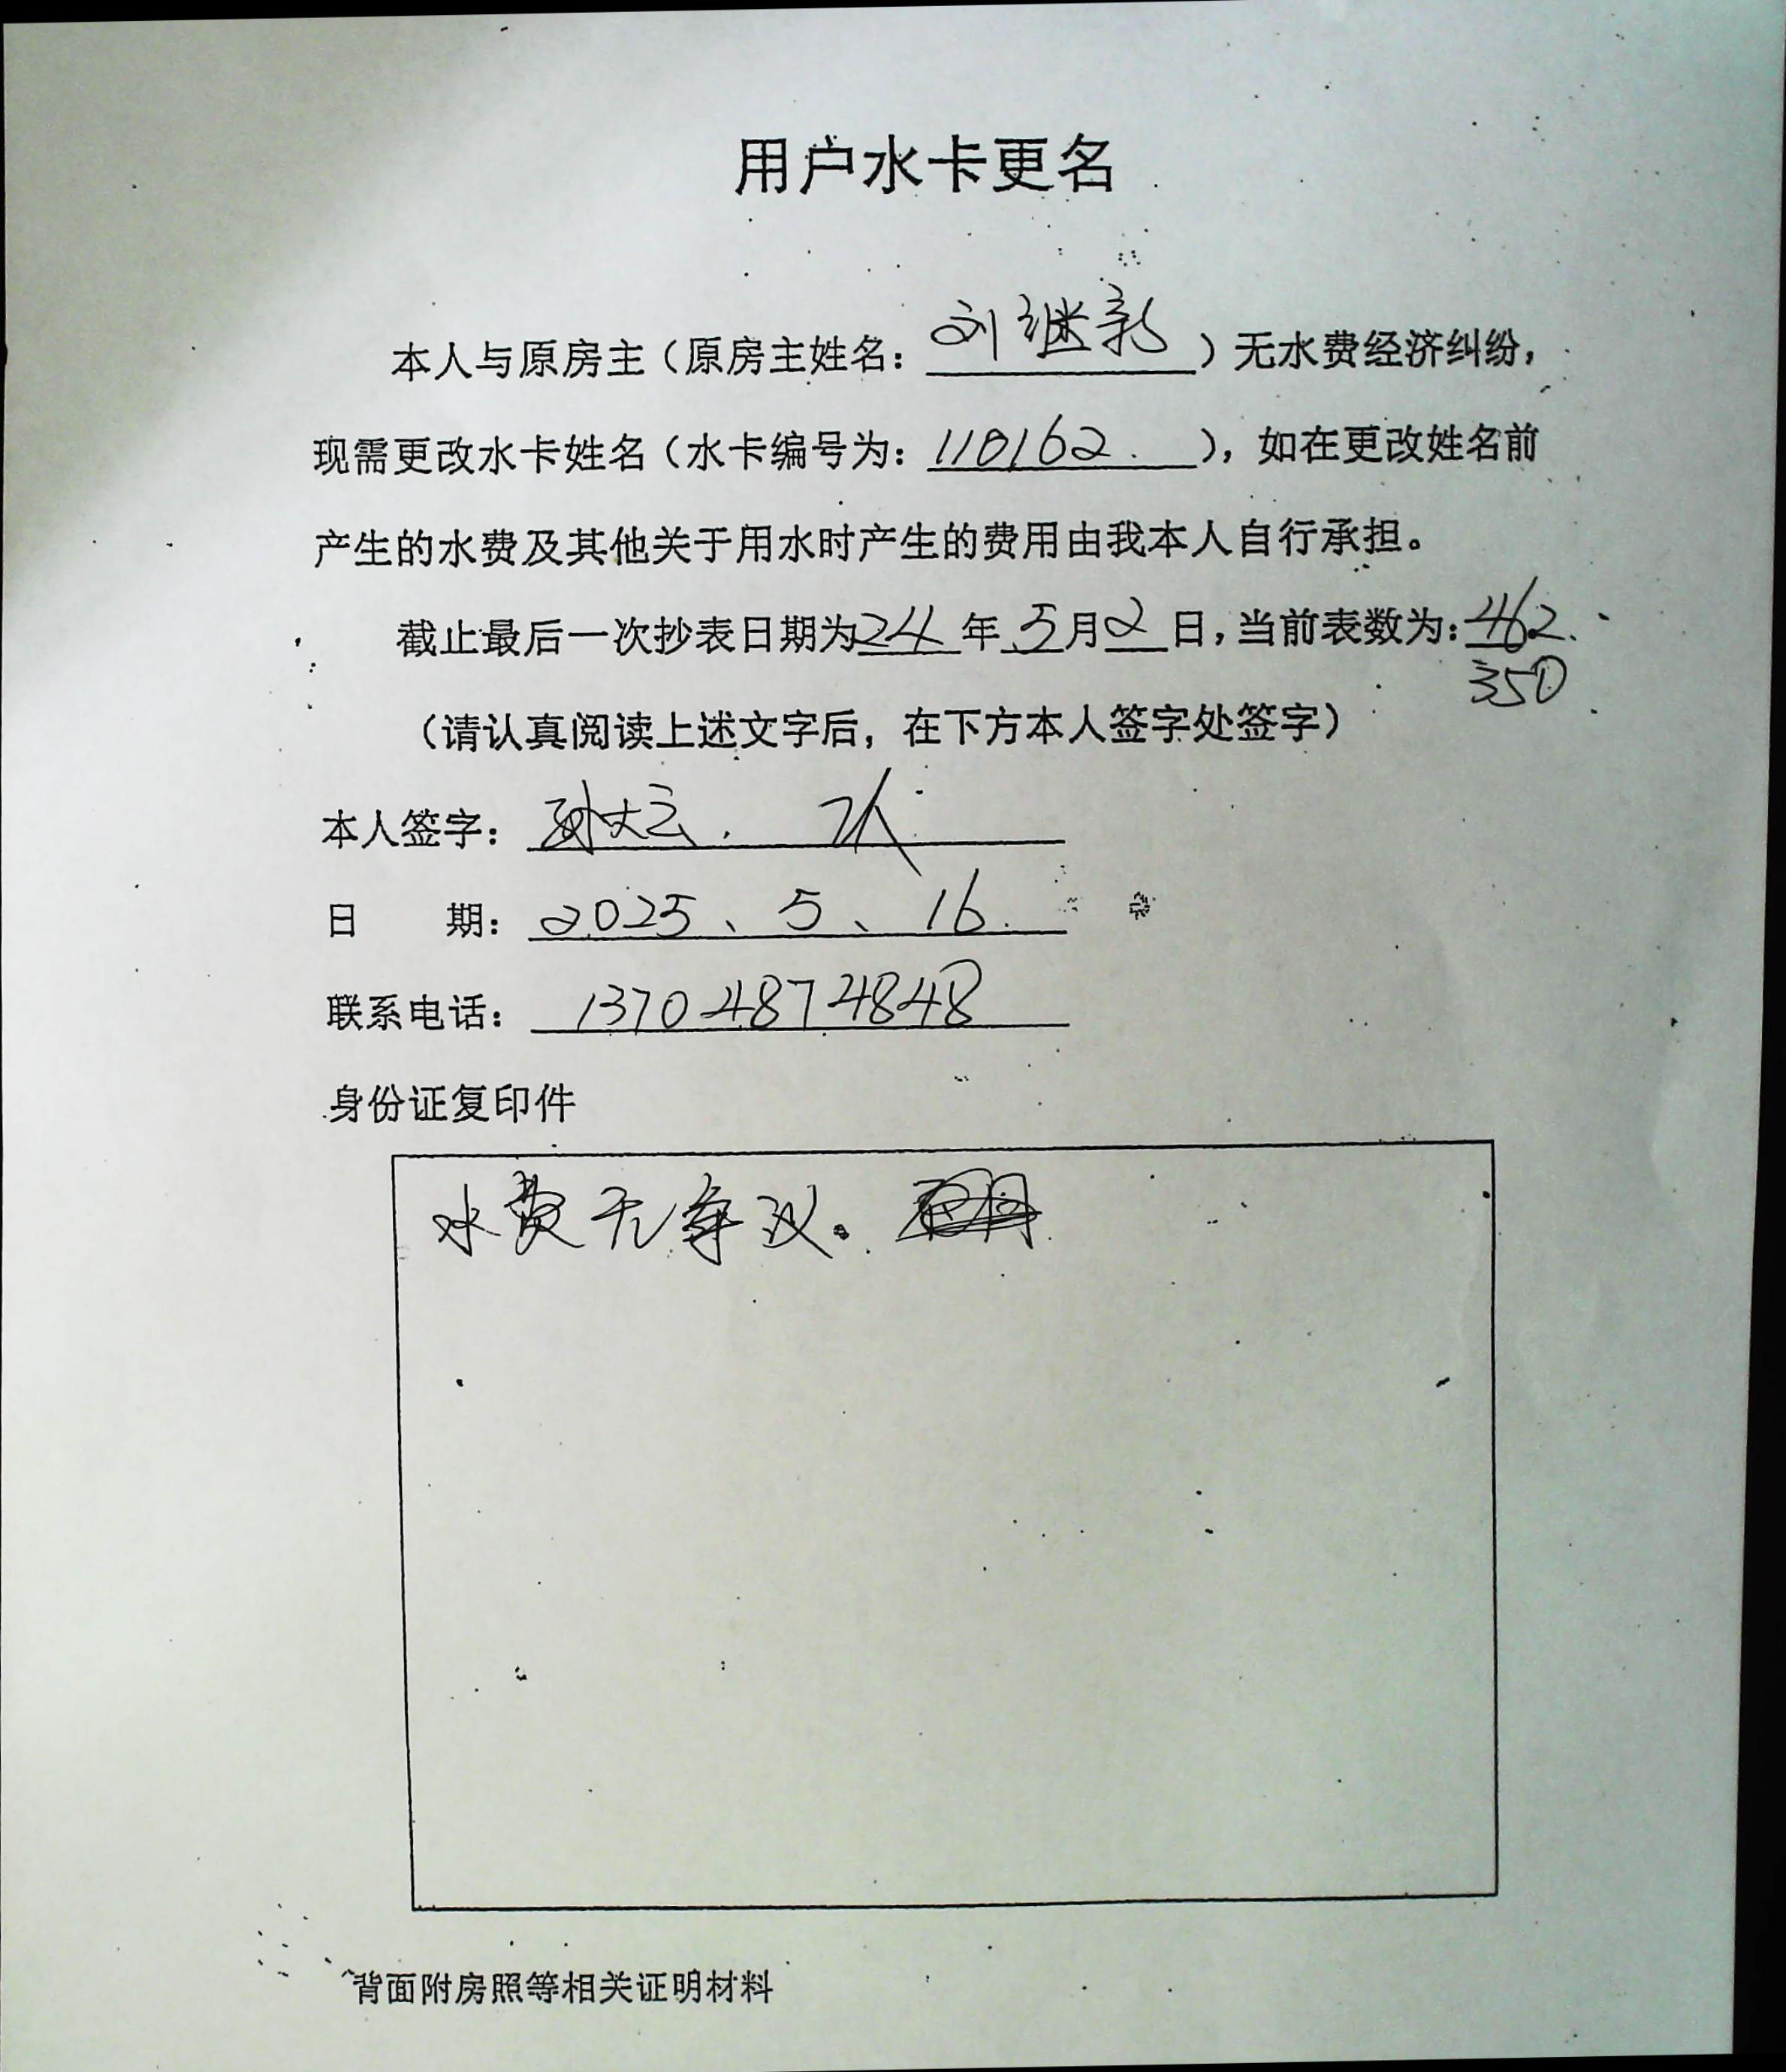 用户水卡更名
本人与原房主（原房主姓名：刘继新）无水费经济纠纷，
现需更改水卡姓名（水卡编号为：110162.），如在更改姓名前
产生的水费及其他关于用水时产生的费用由我本人自行承担。
截止最后一次抄表日期为24年5月2日，当前表数为：462.
350
（请认真阅读上述文字后，在下方本人签字处签字）
本人签字：
日 期：2025、5、16.
联系电话：13704874848
身份证复印件
水费无争议。
背面附房照等相关证明材料